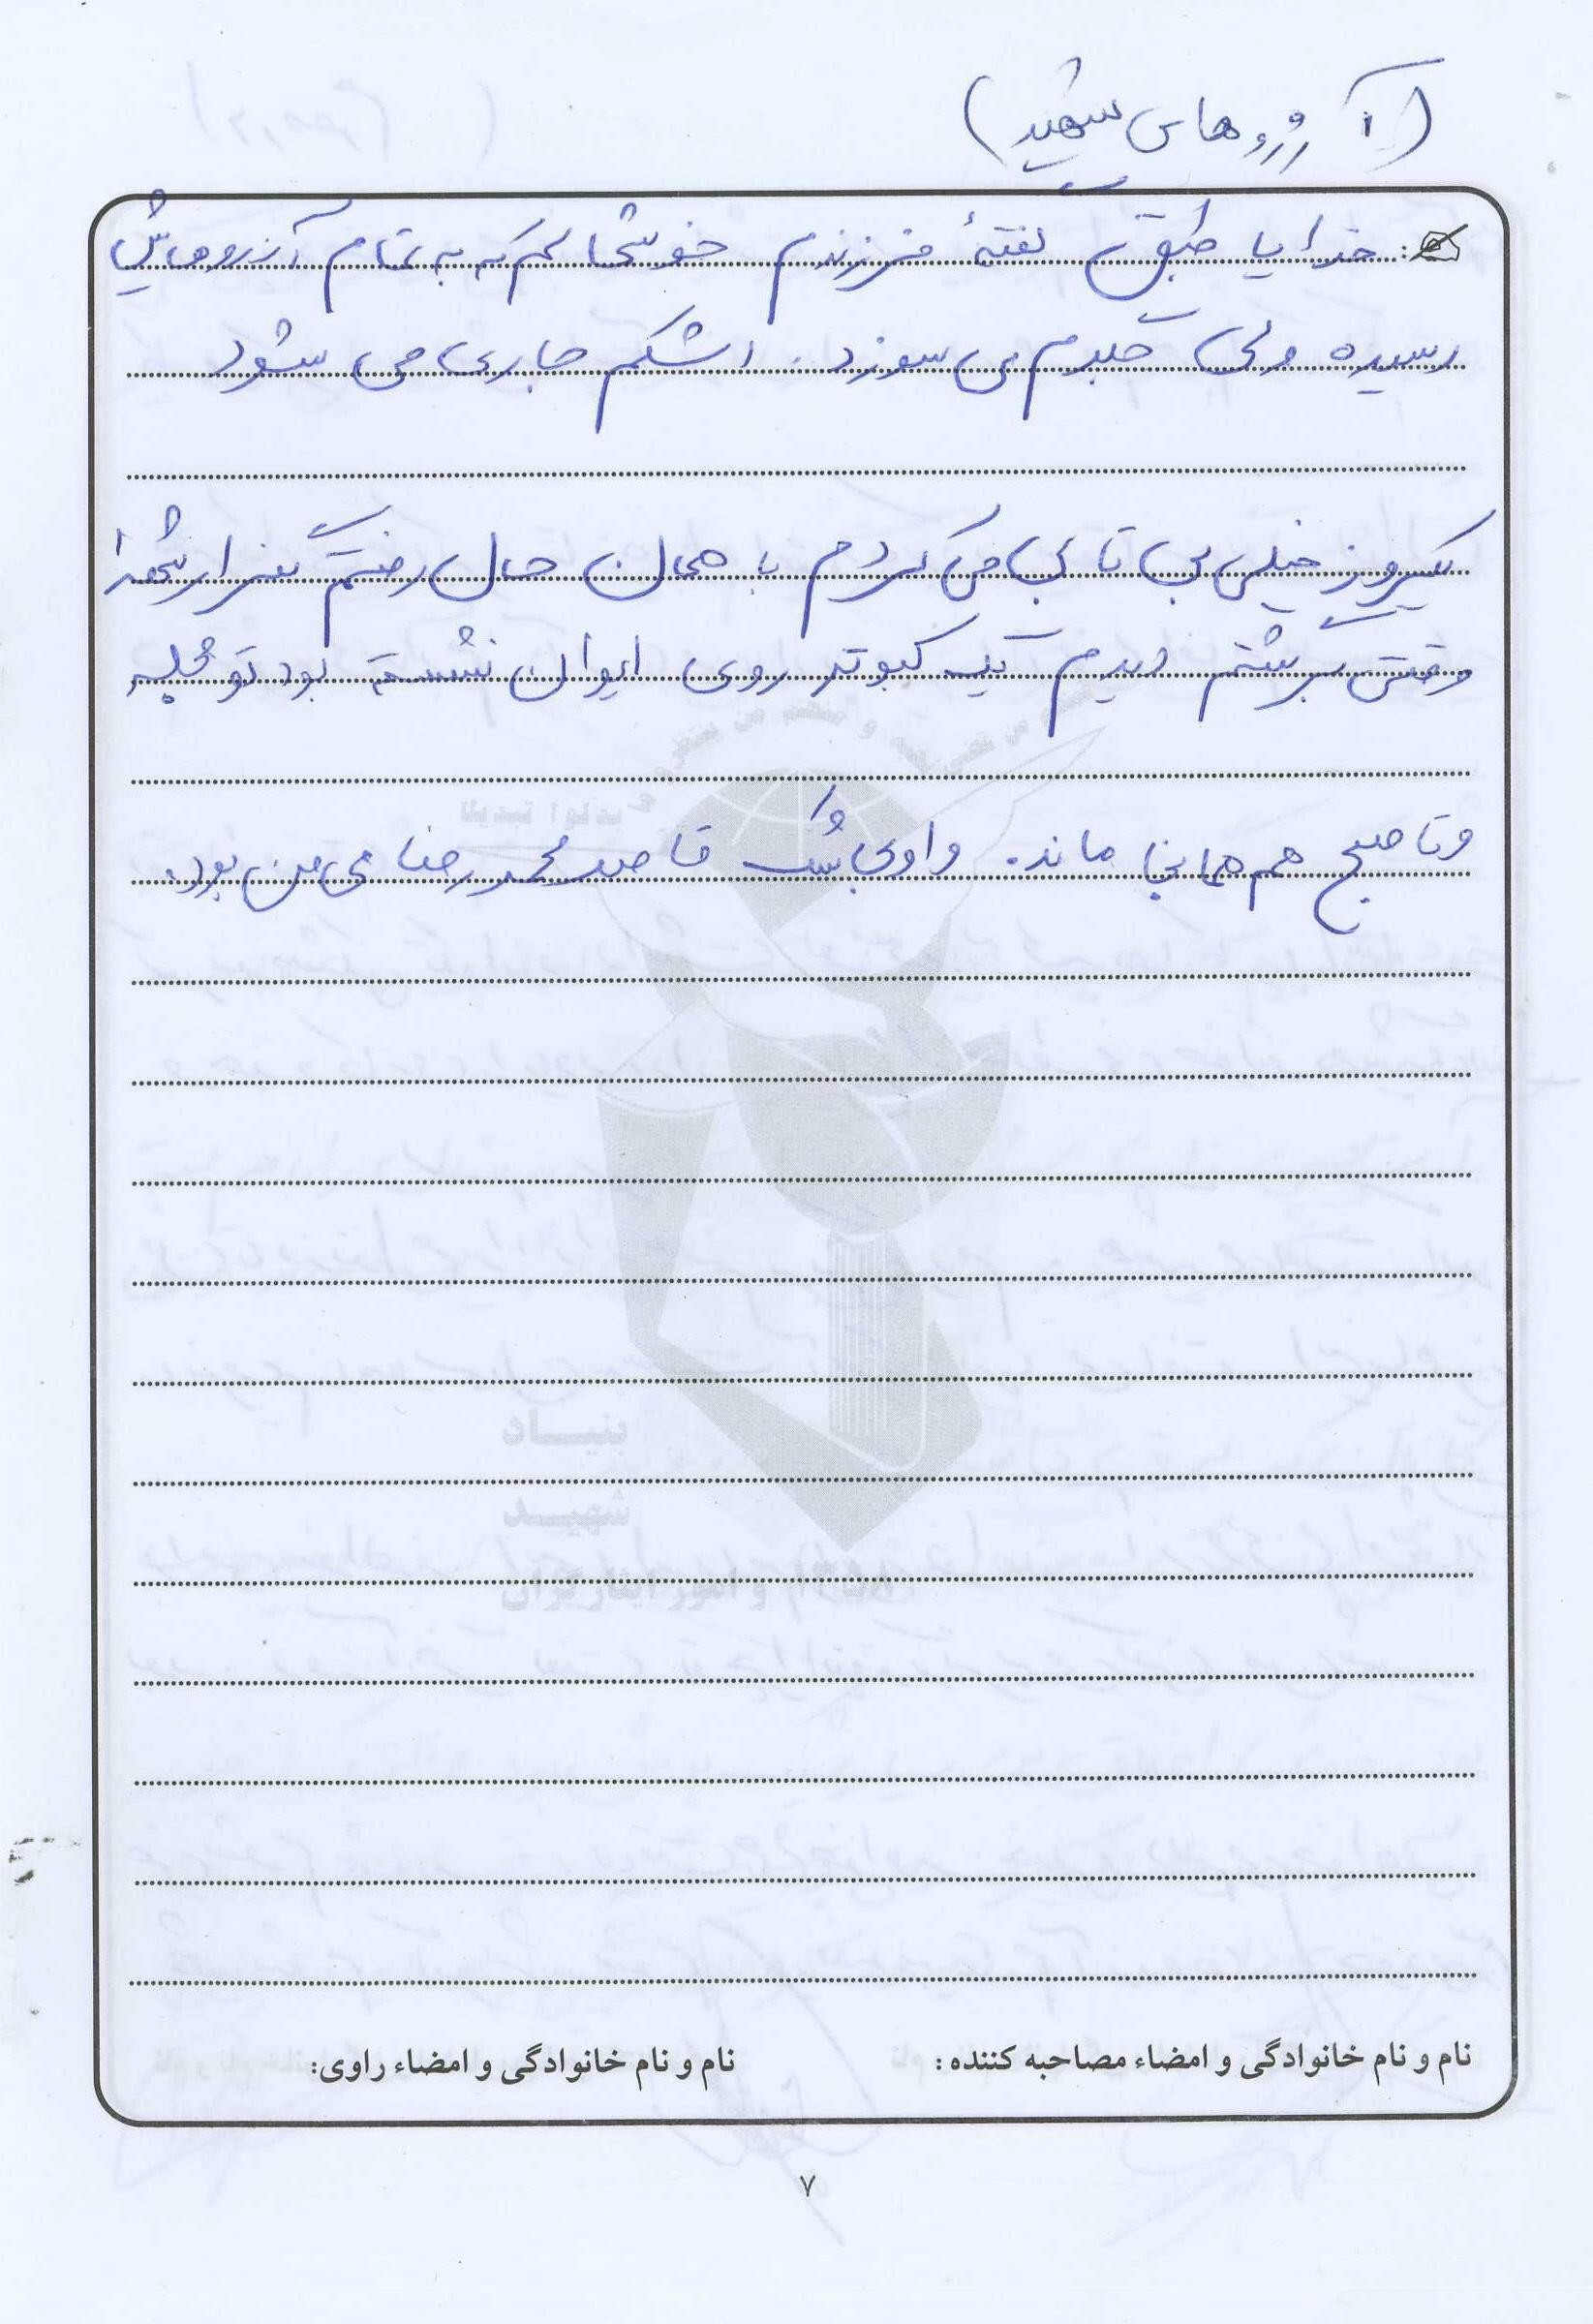 (آرزوهای شهید)
خدایا طبق گفتهٔ فرزندم خوشحالم که به تمام آرزوهاش
رسیده ولی جگرم می سوزد. اشکم جاری می شود
یکروز خیلی بی تابی می کردم با همان حال رفتم گلزار شهدا
وقتی برگشتم دیدم یک کبوتر روی ایوان نشسته بود تو
وتا صبح هم همانجا ماند. و او قاصد محمدرضا می من بود.
بنیاد
شهید
و امور ایثارگران
نام و نام خانوادگی و امضاء مصاحبه کننده:
نام و نام خانوادگی و امضاء راوی:
۷